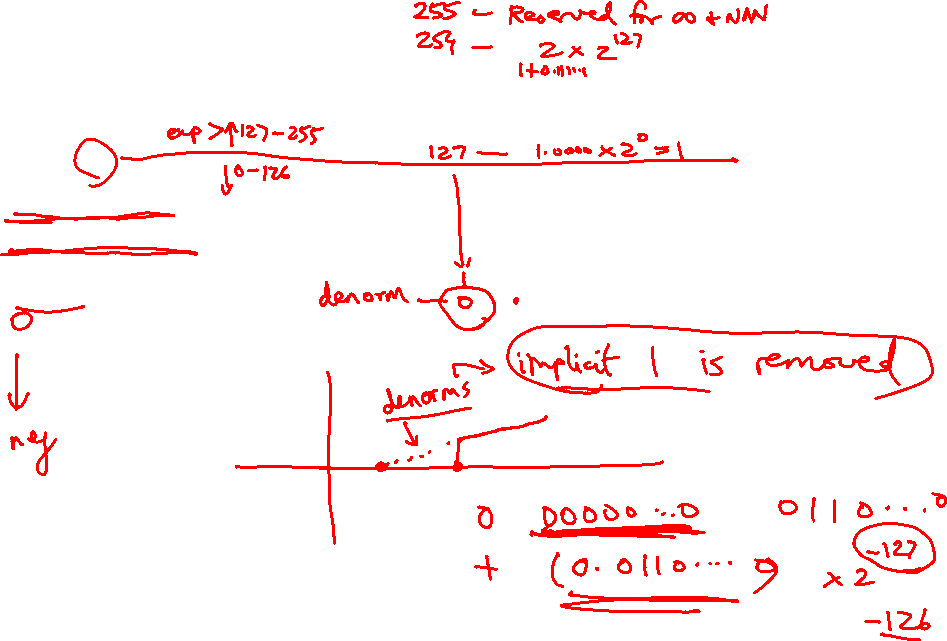 255 - Reserved for ∞ + NAN
254 - 2 × 2^127
1+0.1111..1
exp > ↑ 127-255
↓ 0-126
127 — 1.0000 × 2^0 = 1
denorm - 0 .
implicit 1 is removed
denorms
neg
0 00000...0 0110...0
+ (0.0110...0) × 2^-127
-126